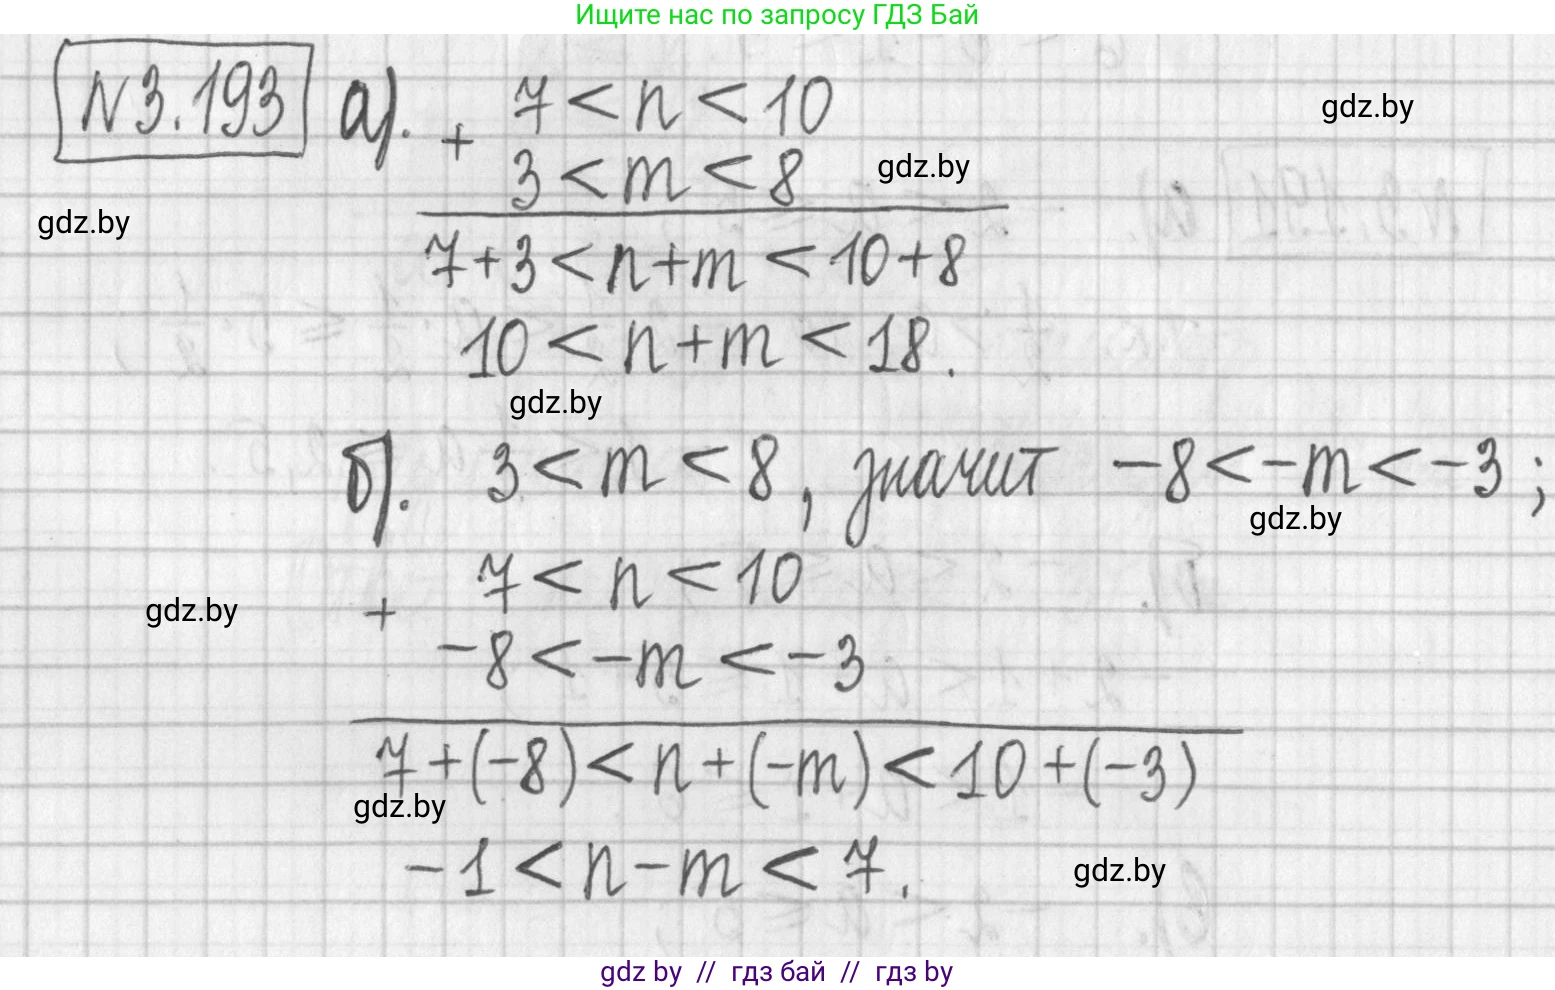 Ищите нас по запросу ГДЗ Бай
N3.193 а). 7 < n < 10
gdz.by
+ 3 < m < 8
gdz.by
gdz.by
7+3 < n+m < 10+8
10 < n+m < 18.
gdz.by
б). 3 < m < 8, значит -8 < -m < -3;
gdz.by
7 < n < 10
gdz.by
+ -8 < -m < -3
7+(-8) < n+(-m) < 10+(-3)
gdz.by
-1 < n-m < 7.
gdz.by
gdz by // гдз бай // гдз by